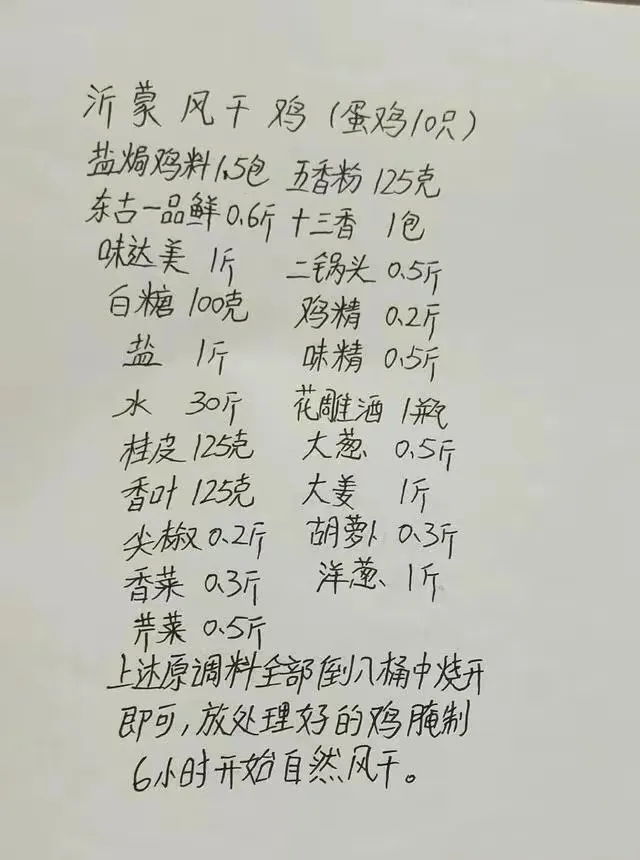 沂蒙风干鸡(蛋鸡10只)
盐焗鸡料1.5包 五香粉125克
东古一品鲜0.6斤 十三香 1包
味达美 1斤 二锅头 0.5斤
白糖100克 鸡精 0.2斤
盐 1斤 味精 0.5斤
水 30斤 花雕酒 1瓶
桂皮125克 大葱 0.5斤
香叶125克 大姜 1斤
尖椒0.2斤 胡萝卜 0.3斤
香菜 0.3斤 洋葱 1斤
芹菜 0.5斤
上述原调料全部倒入桶中烧开
即可,放处理好的鸡腌制
6小时开始自然风干。